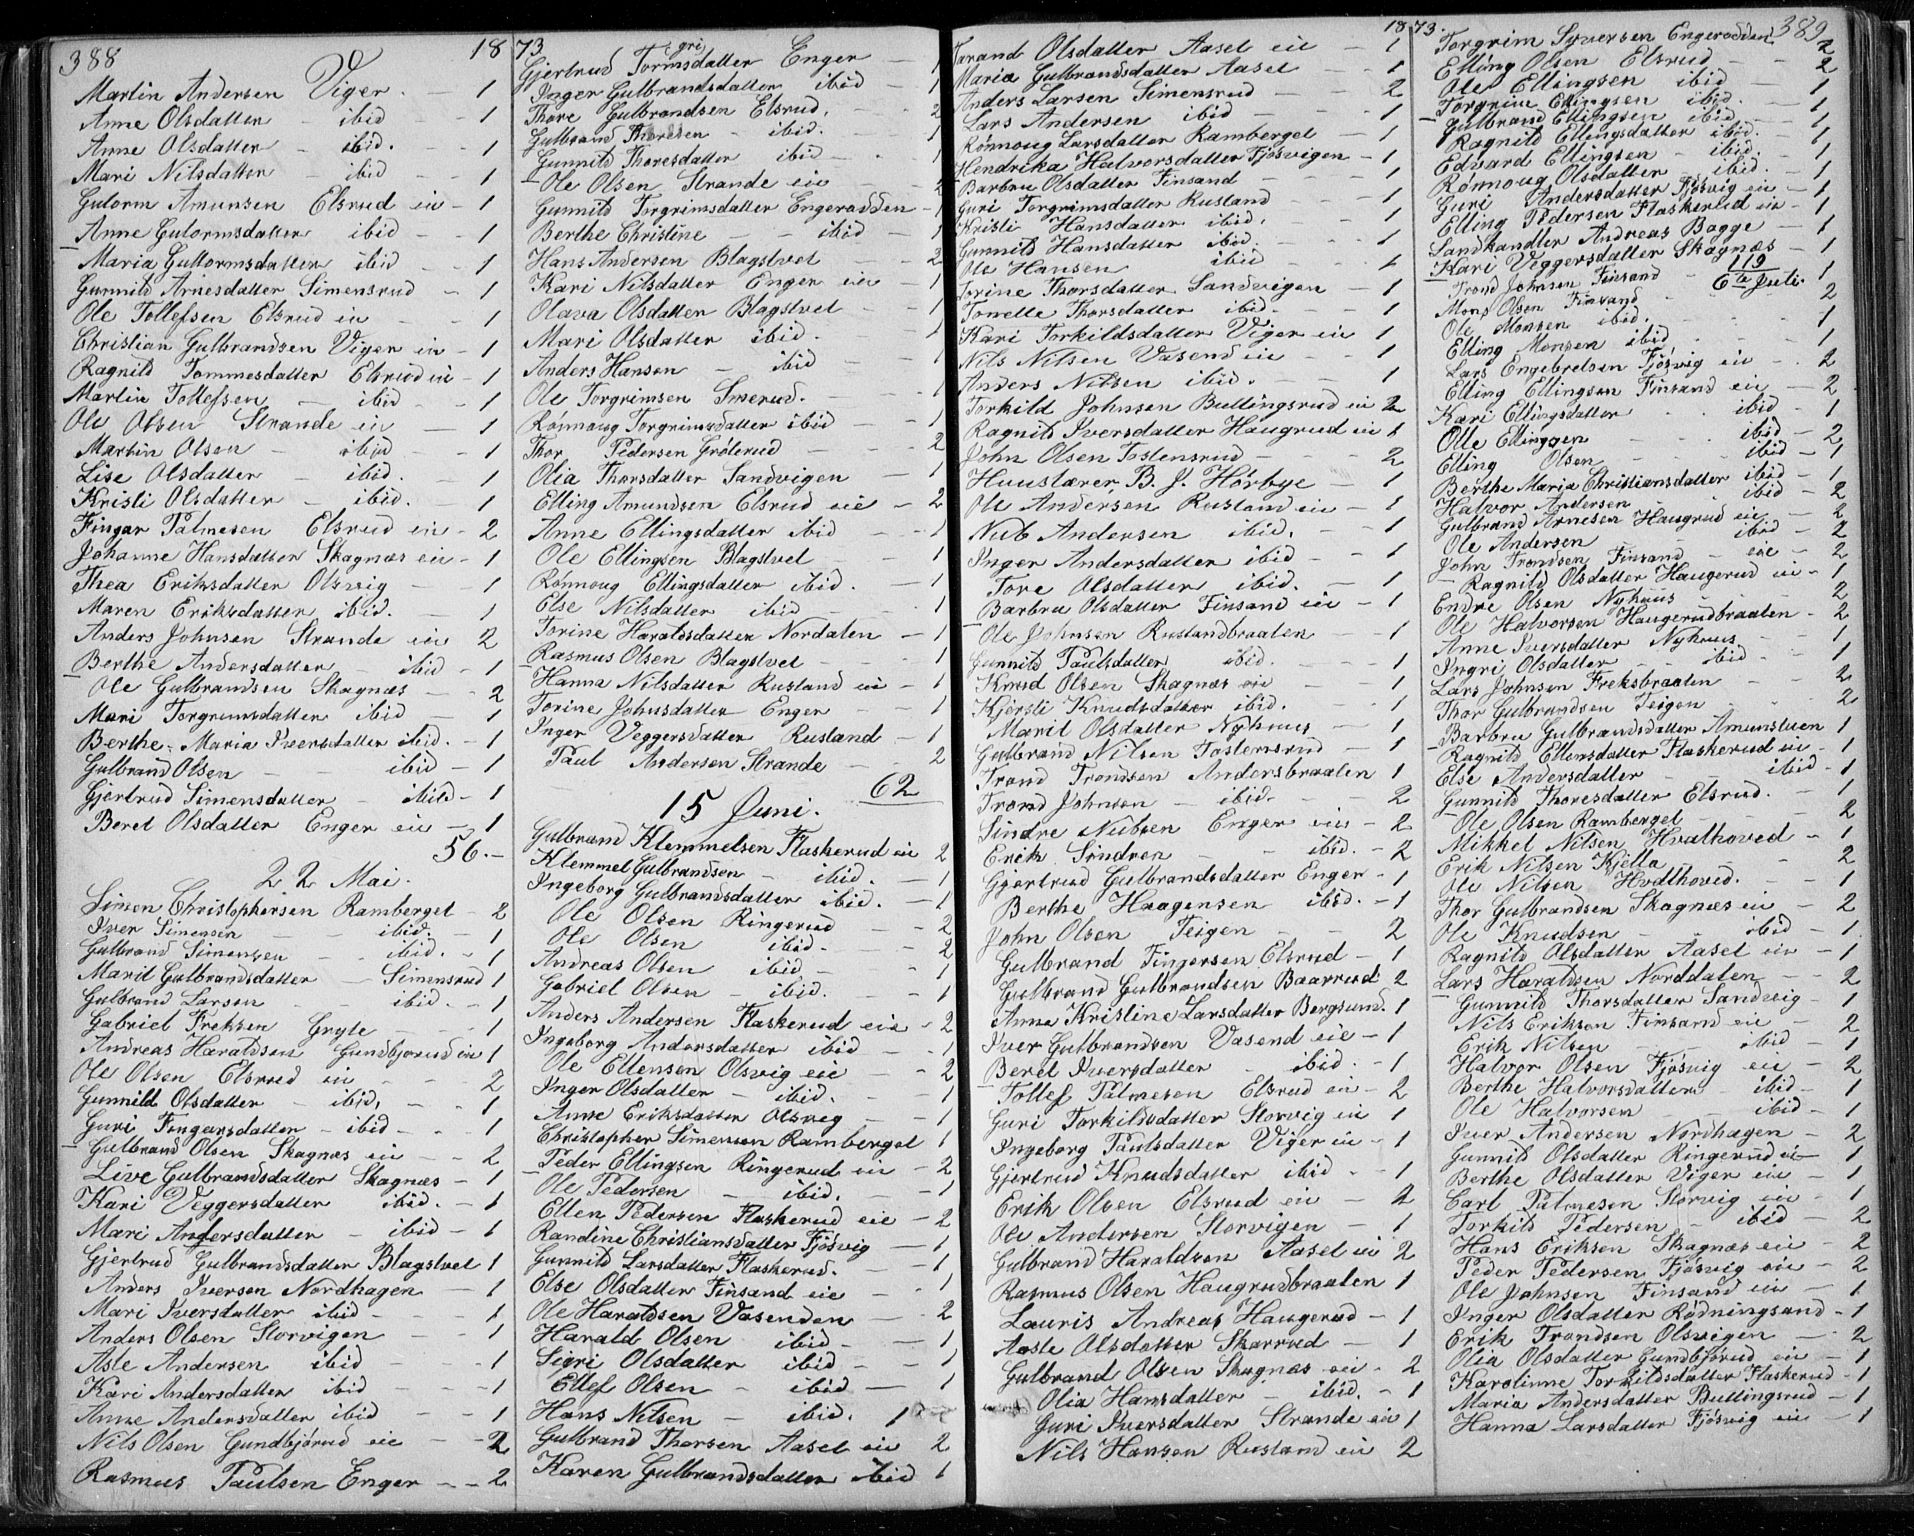 388
1873
Martin Andersen Viger - 1
Anne Olsdatter - ibid - 1
Anne Olsdatter - ibid. - 1
Mari Nilsdatter - ibid - 1
Gutorm Amunsen Elsrud eie - 1
Anne Gutormsdatter ibid - 1
Maria Guttormsdatter ibid - 1
Gunnild Arnesdatter Simensrud - 1
Ole Tollefsen Elsrud eie - 1
Christian Gulbrandsen Viger eie - 1
Ragnild Tommesdatter Elsrud eie - 1
Martin Tollefsen - ibid - 1
Ole Olsen Strande eie - 1
Martin Olsen - ibid - 1
Lise Olsdatter - ibid. - 1
Kristi Olsdatter - ibid. - 1
Fingar Palmesen Elsrud eie - 2
Johanne Hansdatter Skagnæs eie - 1
Thea Eriksdatter Olsvig - 1
Maren Eriksdatter ibid. - 1
Anders Johnsen Strande eie 2
Berthe Andersdatter - ibid - 1
Ole Gulbrandsen Skagnæs - 2
Mari Torgrimsdatter ibid - 1
Berthe Maria Iversdatter ibid. - 1
Gulbrand Olsen - - ibid - 1
Gjertrud Simensdatter - ibid - 1
Beret Olsdatter Enger eie - 1
56.-
22 Mai.
Simen Christophersen Ramberget - 2
Iver Simensen - ibid. - 1
Gulbrand Simensen - ibid. - 1
Marit Gulbrandsdatter - Simensrud 1
Gulbrand Larsen - ibid. - 1
Gabriel Freksen Gryte - 1
Andreas Haraldsen Gundbjørrud eie 1
Ole Olsen Elsrud eie - 2
Gunnild Olsdatter - ibid, - 1
Guri Fingarsdatter - ibid - 1
Gulbrand Olsen Skagnæs eie - 2
Live Gulbrandsdatter Skagnæs - 1
Kari Veggersdatter ibid. - 1
Mari Andersdatter - ibid - 1
Gjertrud Gulbrandsdatter Blagstvet 1
Anders Iversen Nordhagen - 1
Mari Iversdatter ibid - 1
Anders Olsen Storvigen - 1
Asle Andersen ibid - 1
Kari Andersdatter ibid - 1
Anne Andersdatter ibid - 1
Nils Olsen Gundbjørud eie - 2
Rasmus Paulsen Enger - 2
Gjertrud Tormsdatter Enger - 1
gri
Inger Gulbrandsdatter ibid - 1
Thore Gulbrandsen Elsrud. 2
Gulbrand Thoresen - ibid. 1
Gunnild Thoresdatter ibid - 1
Ole Olsen Strande eie - 2
Gunnild Torgrimsdatter Engerodden - 1
Berthe Christine - - ibid - 1
Hans Andersen Blagstvet - 2
Kari Nilsdatter Enger eie - 1
Olava Olsdatter Blagstvet - 1
Mari Olsdatter ibid. 1
Anders Hansen - ibid 1
Ole Torgrimsen Smerud. 1
Rønnoug Torgrimsdatter ibid - 1
Thor Pedersen Grøterud - 2
Olia Thorsdatter Sandvigen 1
Elling Amundsen Elsrud eie - 2
Anne Ellingsdatter ibid - 1
Ole Ellingsen Blagstvet - 1
Rønnoug Ellingsdatter ibid. - 1
Else Nilsdatter ibid - 1
Torine Haraldsdatter Nordalen - 1
Rasmus Olsen Blagstvet - 1
Hanna Nilsdatter Rustand eie - 1
Torine Johnsdatter Enger - 1
Inger Veggersdatter Rustand - 1
Paul Andersen Strande - 2
62
15 Juni.
Gulbrand Klemmetsen Flaskerud eie 2
Klemmet Gulbrandsen - ibid. - 1
Ingeborg Gulbrandsdatter ibid. - 1
Ole Olsen Ringerud - 2
Ole Olsen ibid. - 2
Andreas Olsen ibid - 1
Gabriel Olsen - ibid. - 1
Anders Andersen Flaskerud eie - 2
Ingeborg Andersdatter ibid - 1
Ole Ellensen Olsvig eie - 2
Inger Olsdatter - ibid. - 1
Anne Eriksdatter Olsvig - 1
Christopher Simensen Ramberget 1
Peder Ellingsen Ringerud eie - 2
Ole Pedersen - ibid. - 1
Ellen Pedersen Flaskerud eie - 2
Randine Christiansdatter Fjøsvig - 1
Gunnild Larsdatter Flaskerud. - 1
Else Olsdatter Finsand eie - 1
Ole Haraldsen Vasenden - 2
Harald Olsen ibid - 1
Sigri Olsdatter ibid - 1
Ellef Olsen - ibid - 1
Hans Nilsen - ibid. 1
Gulbrand Thorsen Aasel eie 2
Karen Gulbrandsdatter ibid 1
1873.
389
Tarand Olsdatter Aasel eie - 1
Maria Gulbrandsdatter Aasel - 1
Anders Larsen Simensrud - 2
Lars Andersen ibid - 1
Rønnoug Larsdatter Ramberget - 1
Hendrika Halvorsdatter Fjøsvigen - 1
Barbru Olsdatter Finsand - 1
Guri Torgrimsdatter Rustand - 1
Kristi Hansdatter ibid. - 1
Gunnild Hansdatter ibid. - 1
Ole Hansen ibid - 1
Torine Thorsdatter Sandvigen - 1
Tonette Thorsdatter ibid. - 1
Kari Torkildsdatter Viger eie 1
Nils Nilsen Vasend eie - 1
Anders Nilsen ibid. - 1
Torkild Johnsen Bullingsrud eie 2
Ragnild Iversdatter Haugrud eie 1
John Olsen Tostensrud - 2
Huuslærer B. J. Hørbye - 1
Ole Andersen Rustand eie - 1
Nub Andersen ibid. - 1
Inger Andersdatter ibid - 1
Tore Olsdatter ibid. - 1
Barbru Olsdatter Finsand eie - 1
Ole Johnsen Rustandbraaten - 1
Gunnild Paulsdatter ibid. - 1
Knud Olsen Skagnæs eie - 1
Kjersti Knudsdatter ibid. - 1
Marit Olsdatter Nyhuus - 1
Gulbrand Nilsen Tostensrud - 1
Trond Trondsen Andersbraaten 1
Trond Johnsen - ibid. - 2
Sindre Nubsen Enger eie - 2
Erik Sindren - - ibid. - 2
Gjertrud Gulbrandsdatter Enger - 1
Berthe Haagensen ibid. - 1
John Olsen Teigen - 2
Gulbrand Fingersen Elsrud - 1
Gulbrand Gulbrandsen Baarrud 2
Anne Kristine Larsdatter Bergsund. 1
Iver Gulbrandsen Vasend eie - 1
Beret Iversdatter - ibid. - 1
Tollef Palmesen Elsrud eie - 2
Guri Torkildsdatter Storvig eie 1
Ingeborg Paulsdatter Viger eie - 1
Gjertrud Knudsdatter ibid - 1
Erik Olsen Elsrud eie - 2
Ole Andersen Storvigen - 1
Gulbrand Haraldsen Aasel eie 2
Rasmus Olsen Haugrudbraaten 1
Lauris Andreas Haugerud - 1
Aaste Olsdatter Skarrud - 1
Gulbrand Olsen Skagnæs eie - 2
Olia Hansdatter - ibid. - 1
Guri Iversdatter Strande eie 1
Nils Hansen Rustand eie 2
Torgrim Syversen Engerodden 2
Elling Olsen Elsrud - 2
Ole Ellingsen ibid - 1
Torgrim Ellingsen ibid. - 1
Gulbrand Ellingsen ibid - 1
Ragnild Ellingsdatter ibid. 1
Edvard Ellingsen - ibid. - 1
Rønnoug Olsdatter ibid. - 1
Guri Andersdatter Fjøsvig eie - 1
Elling Pedersen Flaskerud eie - 1
Landhandler Andreas Bagge - 1
Kari Veggersdatter Skagnæs - 1
119
6te Juli.
Trond Johnsen Finsand - 1
Mons Olsen Finsand - 2
Ole Monsen ibid. - 1
Elling Monsen ibid - 1
Lars Engebretsen Fjøsvig eie - 2
Elling Ellingsen Finsand eie - 2
Kari Ellingsdatter ibid - 1
Olle Ellingsen ibid - 2
Elling Olsen - ibid - 1
Berthe Maria Christiansdatter ibid - 1
Halvor Andersen ibid - 2
Gulbrand Arnesen Haugrud eie - 2
Ole Andersen ibid - 2
John Trondsen Finsand - eie - 2
Ragnild Olsdatter Haugerud eie - 1
Endre Olsen Nyhuus - 2
Ole Halvorsen Haugerudbraaten - 2
Anne Iversdatter Nyhuus - 1
Ingri Olsdatter - ibid - 1
Lars Johnsen Freksbraaten - 2
Thor Gulbrandsen Teigen - 2
Barbru Gulbrandsdatter Amunstuen 1
Ragnild Ellensdatter Flaskerud eie - 1
Else Andersdatter - ibid - 1
Gunnild Thoresdatter Elsrud. - 1
Ole Olsen Ramberget - 2
Mikkel Nilsen Hvalhoved - 1
Erik Nilsen Kjella - 2
Ole Nilsen Hvalhoved. - 1
Thor Gulbrandsen Skagnæs eie - 2
Ole Knudsen - ibid - 1
Ragnild Olsdatter Aasel eie - 1
Lars Haraldsen Norddalen - 2
Gunnild Thorsdatter Sandvig - 1
Nils Eriksen Finsand eie - 2
Erik Nilsen - ibid - 1
Halvor Olsen Fjøsvig eie - 2
Berthe Halvorsdatter ibid - 1
Ole Halvorsen - ibid - 1
Iver Andersen Nordhagen - 2
Gunnild Olsdatter Ringerud eie 1
Berthe Olsdatter Viger eie - 1
Carl Palmesen Storvig eie - 1
Torkild Pedersen - ibid 2
Hans Eriksen Skagnæs eie - 2
Peder Pedersen Fjøsvig eie - 2
Ole Johnsen Finsand eie - 1
Inger Olsdatter Rødningsand - 1
Erik Trondsen Olsvigen - 2
Olia Olsdatter Gundbjørud eie - 1
Karolinne Torkildsdatter Flaskerud - 1
Maria Andersdatter Bullingsrud - 1
Hanna Larsdatter Fjøsvig eie - 1